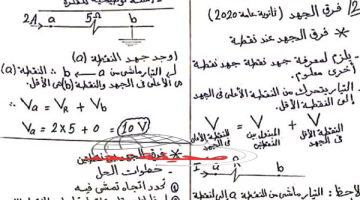 2/ فرق الجهد (ثانوية عامة 2020)
* فرق الجهد عند نقطة
- يلزم لمعرفة جهد نقطة جهد نقطة أخرى معلوم.
- التيار يتحرك من النقطة الأعلى فى الجهد
إلى النقطة الأقل.
V = V + V
النقطة الأعلى فى الجهد
النقطة الأقل فى الجهد
I a b
لاحظ: التيار ماشى من النقطة a إلى النقطة
2A a 5Ω b
(أوجد جهد النقطة (a
أى التيار ماشى من a ← b ∴ النقطة (a)
هى الأعلى فى الجهد والنقطة (b) هى الأقل.
∴ Va = VR + Vb
Va = 2 x 5 + 0 = 10 V
* فرق الجهد بين نقطتين
- خطوات الحل
① نحدد اتجاه نمشى فيه